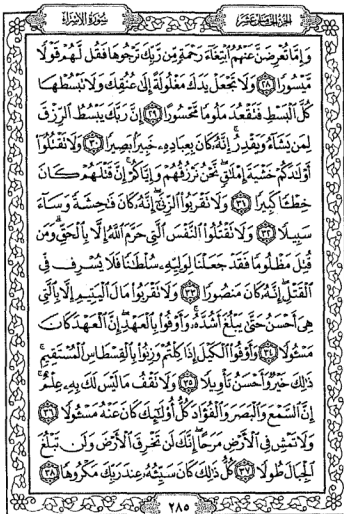 الجزء الخامس عشر
سورة الإسراء
وَإِمَّا تُعْرِضَنَّ عَنْهُمُ ابْتِغَاءَ رَحْمَةٍ مِّن رَّبِّكَ تَرْجُوهَا فَقُل لَّهُمْ قَوْلًا
مَّيْسُورًا ٢٨ وَلَا تَجْعَلْ يَدَكَ مَغْلُولَةً إِلَىٰ عُنُقِكَ وَلَا تَبْسُطْهَا
كُلَّ الْبَسْطِ فَتَقْعُدَ مَلُومًا مَّحْسُورًا ٢٩ إِنَّ رَبَّكَ يَبْسُطُ الرِّزْقَ
لِمَن يَشَاءُ وَيَقْدِرُ إِنَّهُ كَانَ بِعِبَادِهِ خَبِيرًا بَصِيرًا ٣٠ وَلَا تَقْتُلُوا
أَوْلَادَكُمْ خَشْيَةَ إِمْلَاقٍ نَّحْنُ نَرْزُقُهُمْ وَإِيَّاكُمْ إِنَّ قَتْلَهُمْ كَانَ
خِطْئًا كَبِيرًا ٣١ وَلَا تَقْرَبُوا الزِّنَىٰ إِنَّهُ كَانَ فَاحِشَةً وَسَاءَ
سَبِيلًا ٣٢ وَلَا تَقْتُلُوا النَّفْسَ الَّتِي حَرَّمَ اللَّهُ إِلَّا بِالْحَقِّ وَمَن
قُتِلَ مَظْلُومًا فَقَدْ جَعَلْنَا لِوَلِيِّهِ سُلْطَانًا فَلَا يُسْرِف فِّي
الْقَتْلِ إِنَّهُ كَانَ مَنصُورًا ٣٣ وَلَا تَقْرَبُوا مَالَ الْيَتِيمِ إِلَّا بِالَّتِي
هِيَ أَحْسَنُ حَتَّىٰ يَبْلُغَ أَشُدَّهُ وَأَوْفُوا بِالْعَهْدِ إِنَّ الْعَهْدَ كَانَ
مَسْئُولًا ٣٤ وَأَوْفُوا الْكَيْلَ إِذَا كِلْتُمْ وَزِنُوا بِالْقِسْطَاسِ الْمُسْتَقِيمِ
ذَٰلِكَ خَيْرٌ وَأَحْسَنُ تَأْوِيلًا ٣٥ وَلَا تَقْفُ مَا لَيْسَ لَكَ بِهِ عِلْمٌ
إِنَّ السَّمْعَ وَالْبَصَرَ وَالْفُؤَادَ كُلُّ أُولَٰئِكَ كَانَ عَنْهُ مَسْئُولًا ٣٦
وَلَا تَمْشِ فِي الْأَرْضِ مَرَحًا إِنَّكَ لَن تَخْرِقَ الْأَرْضَ وَلَن تَبْلُغَ
الْجِبَالَ طُولًا ٣٧ كُلُّ ذَٰلِكَ كَانَ سَيِّئُهُ عِندَ رَبِّكَ مَكْرُوهًا ٣٨
٢٨٥